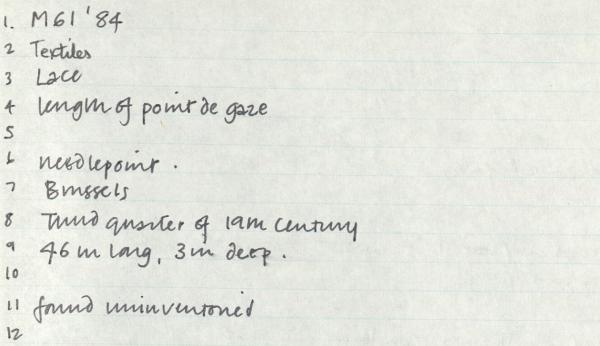 1. M61 '84
2 Textiles
3 Lace
4 length of point de gaze
5
6 needlepoint .
7 Brussels
8 Third quarter of 19th century
9 46 in long, 3 in deep .
10
11 found uninventoried
12